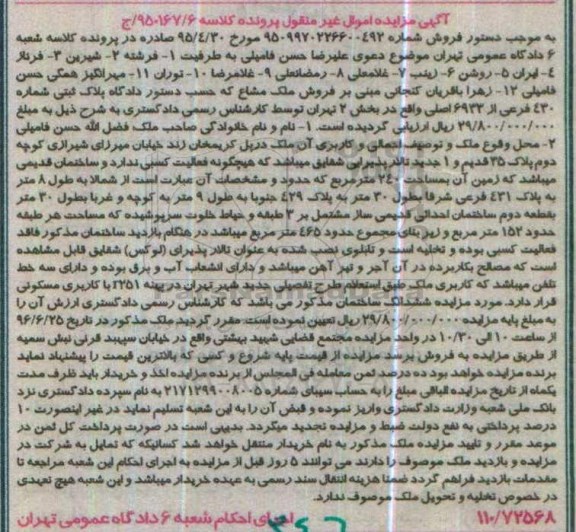 آگهی مزایده اموال غیر منقول پرونده کلاسه ۹۵۰۱۶۷/۶/ج
به موجب دستور فروش شماره ۹۵۰۹۹۷۰۲۲۶۶۰۰۴۹۲ مورخ ۹۵/۴/۳۰ صادره در پرونده کلاسه شعبه
۶ دادگاه عمومی تهران موضوع دعوی علیرضا حسن فامیلی به طرفیت ۱- فرشته ۲- شیرین ۳- فرناز
۴- ایران ۵- روشن ۶- زینب ۷- غلامعلی ۸- رمضانعلی ۹- غلامرضا ۱۰- توران ۱۱- مهرانگیز همگی حسن
فامیلی ۱۲- زهرا باقریان کنجانی مبنی بر فروش ملک مشاع که حسب دستور دادگاه پلاک ثبتی شماره
۴۳۰ فرعی از ۶۹۳۳ اصلی واقع در بخش ۲ تهران توسط کارشناس رسمی دادگستری به شرح ذیل به مبلغ
۲۹/۸۰۰/۰۰۰/۰۰۰ ریال ارزیابی گردیده است. ۱- نام و نام خانوادگی صاحب ملک فضل الله حسن فامیلی
۲- محل وقوع ملک و توصیف اجمالی و کاربری آن ملک درپل کریمخان زند خیابان میرزای شیرازی کوچه
دوم پلاک ۳۵ قدیم و ۱ جدید تالار پذیرایی شقایق میباشد که هیچگونه فعالیت کسبی ندارد و ساختمان قدیمی
میباشد که زمین آن بمساحت ۲۴۰ مترمربع که حدود و مشخصات آن عبارت است از شمالا به طول ۸ متر
به پلاک ۴۳۱ فرعی شرقا بطول ۳۰ متر به پلاک ۴۲۹ جنوبا به طول ۹ متر به کوچه و غربا بطول ۳۰ متر
بقطعه دوم ساختمان احداثی قدیمی ساز مشتمل بر ۳ طبقه و حیاط خلوت سرپوشیده که مساحت هر طبقه
حدود ۱۵۲ متر مربع و زیر بنای مجموع حدود ۴۶۵ متر مربع میباشد در هنگام بازدید ساختمان مذکور فاقد
فعالیت کسبی بوده و تخلیه است و تابلوی نصب شده به عنوان تالار پذیرای (لوکس) شقایق قابل مشاهده
است که مصالح بکاربرده در آن آجر و تیر آهن میباشد و دارای انشعاب آب و برق بوده و دارای سه خط
تلفن میباشد که کاربری ملک طبق استعلام طرح تفصیلی جدید شهر تهران در پهنه r۲۵۱ با کاربری مسکونی
قرار دارد. مورد مزایده ششدانگ ساختمان مذکور می باشد که کارشناس رسمی دادگستری ارزش آن را
به مبلغ پایه مزایده ۲۹/۸۰۰/۰۰۰/۰۰۰ ریال تعیین نموده است مقرر گردید ملک مذکور در تاریخ ۹۶/۶/۲۵
از ساعت ۱۰ الی ۱۰/۳۰ در واحد مزایده مجتمع قضایی شهید بهشتی واقع در خیابان سپهبد قرنی نبش سمیه
از طریق مزایده به فروش برسد مزایده از قیمت پایه شروع و کسی که بالاترین قیمت را پیشنهاد نماید
برنده مزایده خواهد بود ده درصد ثمن معامله فی المجلس از برنده مزایده اخذ و خریدار باید ظرف مدت
یکماه از تاریخ مزایده الباقی مبلغ را به حساب سیبای شماره ۲۱۷۱۲۹۹۰۰۸۰۰۵ به نام سپرده دادگستری نزد
بانک ملی شعبه وزارت دادگستری واریز نموده و قبض آن را به این شعبه تسلیم نماید در غیر اینصورت ۱۰
درصد پرداختی به نفع دولت ضبط و مزایده تجدید میگردد. بدیهی است در صورت پرداخت کل ثمن در
موعد مقرر و تایید مزایده ملک مذکور به نام خریدار منتقل خواهد شد کسانیکه که تمایل به شرکت در
مزایده و بازدید ملک موصوف را دارند می توانند ۵ روز قبل از مزایده به اجرای احکام این شعبه مراجعه تا
مقدمات بازدید فراهم گردد ضمنا هزینه انتقال سند رسمی به عهده خریدار میباشد و این شعبه هیچ تعهدی
در خصوص تخلیه و تحویل ملک موصوف ندارد.
۱۱۰/۷۲۵۶۸ اجرای احکام شعبه ۶ دادگاه عمومی تهران